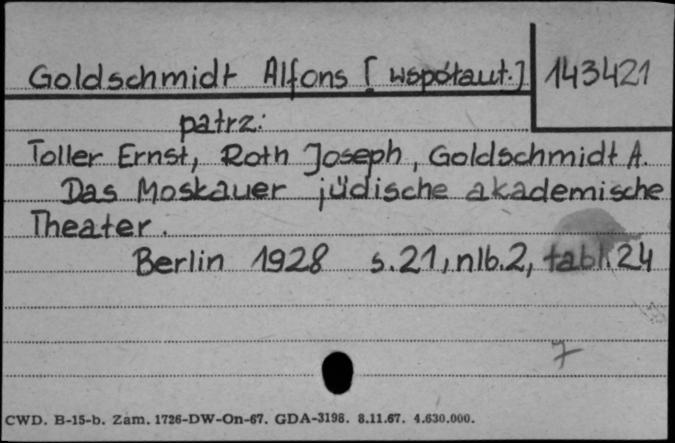 Goldschmidt Alfons [współaut.] 143421
patrz:
Toller Ernst, Roth Joseph, Goldschmidt A.
Das Moskauer jüdische akademische
Theater.
Berlin 1928 s.21, nlb.2, tabl.24
7
CWD. B-15-b. Zam. 1726-DW-On-67. GDA-3198. 8.11.67. 4.630.000.